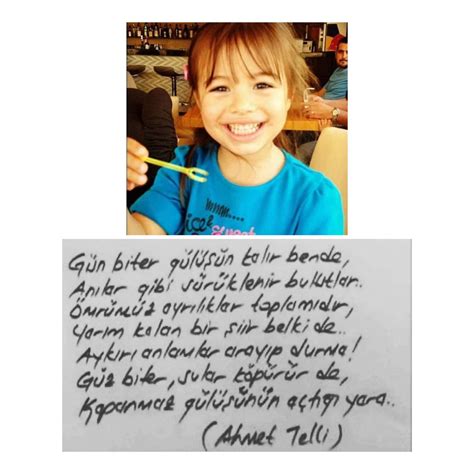 mmm....
Gün biter gülüşün kalır bende,
Anılar gibi sürüklenir bulutlar..
Ömrümüz ayrılıklar toplamıdır,
Yarım kalan bir şiir belki de..
Aykırı anlamlar arayıp durma!
Güz biter, sular köpürür de,
Kapanmaz gülüşünün açtığı yara..
(Ahmet Telli)